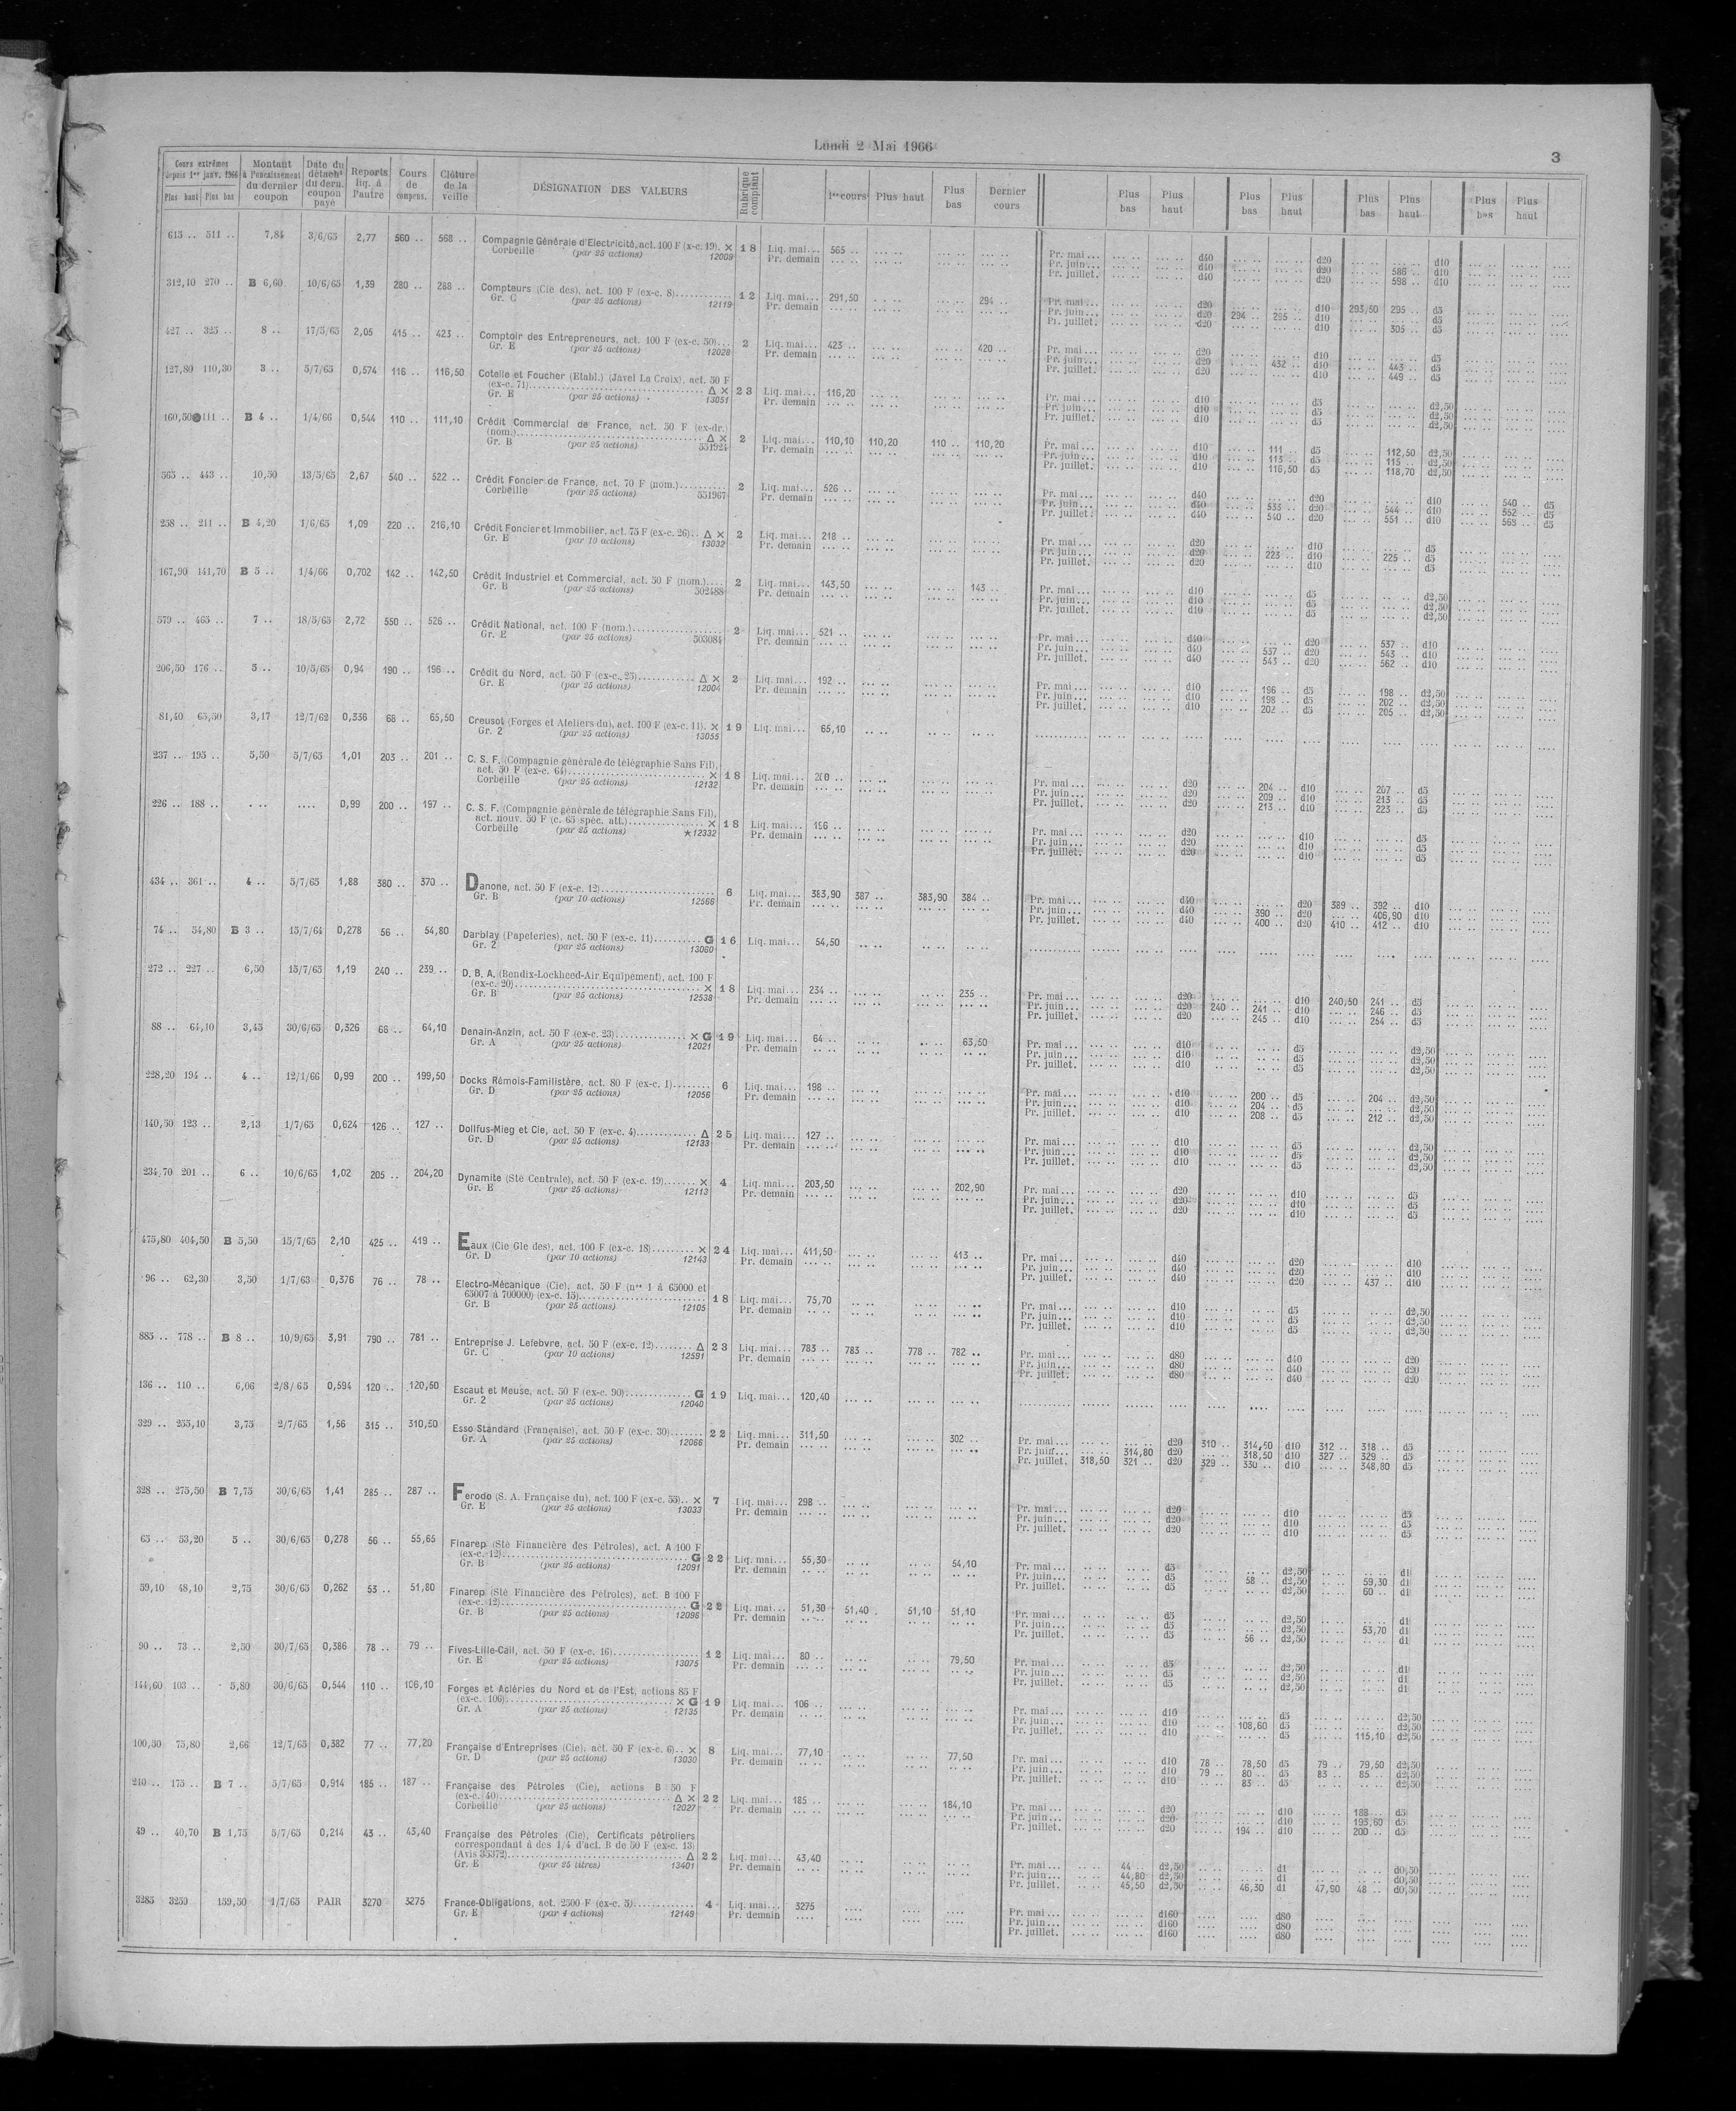 Lundi 2 Mai 1966
3
Cours extrêmes depuis 1er janv. 1966 Plus haut Plus bas
Montant à l'encaissement du dernier coupon
Date du détacht du dern. coupon payé
Reports liq. à l'autre
Cours de compens.
Clôture de la veille
DÉSIGNATION DES VALEURS
Rubrique comptant
1er cours Plus haut Plus bas Dernier cours
Plus bas Plus haut Plus bas Plus haut Plus bas Plus haut Plus bas Plus haut
615 .. 511 .. 7,84 3/6/65 2,77 560 .. 568 .. Compagnie Générale d'Electricité, act. 100 F (x-c. 19). × 18 Liq. mai... 565 ..
Corbeille (par 25 actions) 12009 Pr. demain
Pr. mai... d40 d20 d10
Pr. juin... d40 d20 586 .. d10
Pr. juillet. d40 d20 598 .. d10
312,10 270 .. B 6,60 10/6/65 1,39 280 .. 288 .. Compteurs (Cie des), act. 100 F (ex-c. 8) 12 Liq. mai... 291,50 294 ..
Gr. C (par 25 actions) 12119 Pr. demain
Pr. mai... d20 d10 293,50 295 .. d5
Pr. juin... d20 294 .. 295 .. d10 d5
Pr. juillet. d20 d10 305 .. d5
427 .. 325 .. 8 .. 17/5/65 2,05 415 .. 423 .. Comptoir des Entrepreneurs, act. 100 F (ex-c. 50) 2 Liq. mai... 423 .. 420 ..
Gr. E (par 25 actions) 12028 Pr. demain
Pr. mai... d20 d10 d5
Pr. juin... d20 432 .. d10 443 .. d5
Pr. juillet. d20 d10 449 .. d5
127,80 110,30 3 .. 5/7/65 0,574 116 .. 116,50 Cotelle et Foucher (Etabl.) (Javel La Croix), act. 50 F
(ex-c. 71) Δ × 23 Liq. mai... 116,20
Gr. E (par 25 actions) 13051 Pr. demain
Pr. mai... d10 d5 d2,50
Pr. juin... d10 d5 d2,50
Pr. juillet. d10 d5 d2,50
160,50 111 .. B 4 .. 1/4/66 0,544 110 .. 111,10 Crédit Commercial de France, act. 50 F (ex-dr.)
(nom.) Δ × 2 Liq. mai... 110,10 110,20 110 .. 110,20
Gr. B (par 25 actions) 551924 Pr. demain
Pr. mai... d10 111 .. d5 112,50 d2,50
Pr. juin... d10 113 .. d5 115 .. d2,50
Pr. juillet. d10 116,50 d5 118,70 d2,50
565 .. 443 .. 10,50 13/5/65 2,67 540 .. 522 .. Crédit Foncier de France, act. 70 F (nom.) 2 Liq. mai... 526 ..
Corbeille (par 25 actions) 551967 Pr. demain
Pr. mai... d40 d20 d10 540 .. d5
Pr. juin... d40 533 .. d20 544 .. d10 552 .. d5
Pr. juillet. d40 540 .. d20 551 .. d10 563 .. d5
258 .. 211 .. B 4,20 1/6/65 1,09 220 .. 216,10 Crédit Foncier et Immobilier, act. 75 F (ex-c. 26) Δ × 2 Liq. mai... 218 ..
Gr. E (par 10 actions) 13032 Pr. demain
Pr. mai... d20 d10 d5
Pr. juin... d20 223 .. d10 225 .. d5
Pr. juillet. d20 d10 d5
167,90 141,70 B 5 .. 1/4/66 0,702 142 .. 142,50 Crédit Industriel et Commercial, act. 50 F (nom.) 2 Liq. mai... 143,50 143 ..
Gr. B (par 25 actions) 502488 Pr. demain
Pr. mai... d10 d5 d2,50
Pr. juin... d10 d5 d2,50
Pr. juillet. d10 d5 d2,50
579 .. 465 .. 7 .. 18/5/65 2,72 550 .. 526 .. Crédit National, act. 100 F (nom.) 2 Liq. mai... 521 ..
Gr. E (par 25 actions) 503084 Pr. demain
Pr. mai... d40 d20 537 .. d10
Pr. juin... d40 537 .. d20 543 .. d10
Pr. juillet. d40 543 .. d20 562 .. d10
206,50 176 .. 5 .. 10/5/65 0,94 190 .. 196 .. Crédit du Nord, act. 50 F (ex-c. 25) Δ × 2 Liq. mai... 192 ..
Gr. E (par 25 actions) 12004 Pr. demain
Pr. mai... d10 196 .. d5 198 .. d2,50
Pr. juin... d10 198 .. d5 202 .. d2,50
Pr. juillet. d10 202 .. d5 205 .. d2,50
81,40 65,50 3,17 12/7/62 0,336 68 .. 65,50 Creusot (Forges et Ateliers du), act. 100 F (ex-c. 11). × 19 Liq. mai... 65,10
Gr. 2 (par 25 actions) 13055
237 .. 195 .. 5,50 5/7/65 1,01 203 .. 201 .. C. S. F. (Compagnie générale de télégraphie Sans Fil),
act. 50 F (ex-c. 64) × 18 Liq. mai... 200 ..
Corbeille (par 25 actions) 12132 Pr. demain
Pr. mai... d20 204 .. d10 207 .. d5
Pr. juin... d20 209 .. d10 213 .. d5
Pr. juillet. d20 213 .. d10 223 .. d5
226 .. 188 .. 0,99 200 .. 197 .. C. S. F. (Compagnie générale de télégraphie Sans Fil),
act. nouv. 50 F (c. 63 spéc. att.) × 18 Liq. mai... 196 ..
Corbeille (par 25 actions) ★12332 Pr. demain
Pr. mai... d20 d10 d5
Pr. juin... d20 d10 d5
Pr. juillet. d20 d10 d5
434 .. 361 .. 4 .. 5/7/65 1,88 380 .. 370 .. Danone, act. 50 F (ex-c. 12) 6 Liq. mai... 383,90 387 .. 383,90 384 ..
Gr. B (par 10 actions) 12566 Pr. demain
Pr. mai... d40 d20 389 .. 392 .. d10
Pr. juin... d40 390 .. d20 406,90 d10
Pr. juillet. d40 400 .. d20 410 .. 412 .. d10
74 .. 54,80 B 3 .. 15/7/64 0,278 56 .. 54,80 Darblay (Papeteries), act. 50 F (ex-c. 11) G 16 Liq. mai... 54,50
Gr. 2 (par 25 actions) 13060
272 .. 227 .. 6,50 15/7/65 1,19 240 .. 239 .. D. B. A. (Bendix-Lockheed-Air Equipement), act. 100 F
(ex-c. 20) × 18 Liq. mai... 234 .. 235 ..
Gr. B (par 25 actions) 12538 Pr. demain
Pr. mai... d20 d10 240,50 241 .. d5
Pr. juin... d20 240 .. 241 .. d10 246 .. d5
Pr. juillet. d20 245 .. d10 254 .. d5
88 .. 64,10 3,45 30/6/65 0,326 66 .. 64,10 Denain-Anzin, act. 50 F (ex-c. 23) × G 19 Liq. mai... 64 .. 63,50
Gr. A (par 25 actions) 12021 Pr. demain
Pr. mai... d10 d5 d2,50
Pr. juin... d10 d5 d2,50
Pr. juillet. d10 d5 d2,50
228,20 194 .. 4 .. 12/1/66 0,99 200 .. 199,50 Docks Rémois-Familistère, act. 80 F (ex-c. 1) 6 Liq. mai... 198 ..
Gr. D (par 25 actions) 12056 Pr. demain
Pr. mai... d10 200 .. d5 204 .. d2,50
Pr. juin... d10 204 .. d5 d2,50
Pr. juillet. d10 208 .. d5 212 .. d2,50
140,50 123 .. 2,13 1/7/65 0,624 126 .. 127 .. Dollfus-Mieg et Cie, act. 50 F (ex-c. 4) Δ 25 Liq. mai... 127 ..
Gr. D (par 25 actions) 12133 Pr. demain
Pr. mai... d10 d5 d2,50
Pr. juin... d10 d5 d2,50
Pr. juillet. d10 d5 d2,50
234,70 201 .. 6 .. 10/6/65 1,02 205 .. 204,20 Dynamite (Sté Centrale), act. 50 F (ex-c. 19) × 4 Liq. mai... 203,50 202,90
Gr. E (par 25 actions) 12113 Pr. demain
Pr. mai... d20 d10 d5
Pr. juin... d20 d10 d5
Pr. juillet. d20 d10 d5
475,80 404,50 B 5,50 15/7/65 2,10 425 .. 419 .. Eaux (Cie Gle des), act. 100 F (ex-c. 18) × 24 Liq. mai... 411,50 413 ..
Gr. D (par 10 actions) 12143 Pr. demain
Pr. mai... d40 d20 d10
Pr. juin... d40 d20 d10
Pr. juillet. d40 d20 437 .. d10
96 .. 62,30 3,50 1/7/63 0,376 76 .. 78 .. Electro-Mécanique (Cie), act. 50 F (nos 1 à 65000 et
65007 à 700000) (ex-c. 15) 18 Liq. mai... 75,70
Gr. B (par 25 actions) 12105 Pr. demain
Pr. mai... d10 d5 d2,50
Pr. juin... d10 d5 d2,50
Pr. juillet. d10 d5 d2,50
885 .. 778 .. B 8 .. 10/9/65 3,91 790 .. 781 .. Entreprise J. Lefebvre, act. 50 F (ex-c. 12) Δ 23 Liq. mai... 783 .. 783 .. 778 .. 782 ..
Gr. C (par 10 actions) 12591 Pr. demain
Pr. mai... d80 d40 d20
Pr. juin... d80 d40 d20
Pr. juillet. d80 d40 d20
136 .. 110 .. 6,06 2/8/65 0,594 120 .. 120,50 Escaut et Meuse, act. 50 F (ex-c. 90) G 19 Liq. mai... 120,40
Gr. 2 (par 25 actions) 12040
329 .. 255,10 3,75 2/7/65 1,56 315 .. 310,50 Esso Standard (Française), act. 50 F (ex-c. 30) 22 Liq. mai... 311,50 302 ..
Gr. A (par 25 actions) 12066 Pr. demain
Pr. mai... d20 310 .. 314,50 d10 312 .. 318 .. d5
Pr. juin... 314,80 d20 318,50 d10 327 .. 329 .. d5
Pr. juillet. 318,50 321 .. d20 329 .. 330 .. d10 348,80 d5
328 .. 275,50 B 7,75 30/6/65 1,41 285 .. 287 .. Ferodo (S. A. Française du), act. 100 F (ex-c. 55) × 7 Liq. mai... 298 ..
Gr. E (par 25 actions) 13033 Pr. demain
Pr. mai... d20 d10 d5
Pr. juin... d20 d10 d5
Pr. juillet. d20 d10 d5
65 .. 53,20 5 .. 30/6/65 0,278 56 .. 55,65 Finarep (Sté Financière des Pétroles), act. A 100 F
(ex-c. 12) G 22 Liq. mai... 55,30 54,10
Gr. B (par 25 actions) 12091 Pr. demain
Pr. mai... d5 d2,50 d1
Pr. juin... d5 58 .. d2,50 59,30 d1
Pr. juillet. d5 d2,50 60 .. d1
59,10 48,10 2,75 30/6/65 0,262 53 .. 51,80 Finarep (Sté Financière des Pétroles), act. B 100 F
(ex-c. 12) G 22 Liq. mai... 51,30 51,40 51,10 51,10
Gr. B (par 25 actions) 12096 Pr. demain
Pr. mai... d5 d2,50 d1
Pr. juin... d5 d2,50 53,70 d1
Pr. juillet. d5 56 .. d2,50 d1
90 .. 73 .. 2,50 30/7/65 0,386 78 .. 79 .. Fives-Lille-Cail, act. 50 F (ex-c. 16) 12 Liq. mai... 80 .. 79,50
Gr. E (par 25 actions) 13075 Pr. demain
Pr. mai... d5 d2,50 d1
Pr. juin... d5 d2,50 d1
Pr. juillet. d5 d2,50 d1
144,60 103 .. 5,80 30/6/65 0,544 110 .. 106,10 Forges et Aciéries du Nord et de l'Est, actions 85 F
(ex-c. 106) × G 19 Liq. mai... 106 ..
Gr. A (par 25 actions) 12135 Pr. demain
Pr. mai... d10 d5 d2,50
Pr. juin... d10 108,60 d5 d2,50
Pr. juillet. d10 d5 115,10 d2,50
100,30 75,80 2,66 12/7/65 0,382 77 .. 77,20 Française d'Entreprises (Cie), act. 50 F (ex-c. 6) × 8 Liq. mai... 77,10 77,50
Gr. D (par 25 actions) 13030 Pr. demain
Pr. mai... d10 78 .. 78,50 d5 79 .. 79,50 d2,50
Pr. juin... d10 79 .. 80 .. d5 83 .. 85 .. d2,50
Pr. juillet. d10 83 .. d5 d2,50
210 .. 175 .. B 7 .. 5/7/65 0,914 185 .. 187 .. Française des Pétroles (Cie), actions B 50 F
(ex-c. 40) Δ × 22 Liq. mai... 185 .. 184,10
Corbeille (par 25 actions) 12027 Pr. demain
Pr. mai... d20 d10 188 .. d5
Pr. juin... d20 d10 193,60 d5
Pr. juillet. d20 194 .. d10 200 .. d5
49 .. 40,70 B 1,75 5/7/65 0,214 43 .. 43,40 Française des Pétroles (Cie), Certificats pétroliers
correspondant à des 1/4 d'act. B de 50 F (ex-c. 13)
(Avis 35372) Δ 22 Liq. mai... 43,40
Gr. E (par 25 titres) 13401 Pr. demain
Pr. mai... 44 .. d2,50 d1 d0,50
Pr. juin... 44,80 d2,50 d1 d0,50
Pr. juillet. 45,50 d2,50 46,30 d1 47,90 48 .. d0,50
3285 3250 159,50 1/7/65 PAIR 3270 3275 France-Obligations, act. 2500 F (ex-c. 5) 4 Liq. mai... 3275
Gr. E (par 4 actions) 12149 Pr. demain
Pr. mai... d160 d80
Pr. juin... d160 d80
Pr. juillet. d160 d80